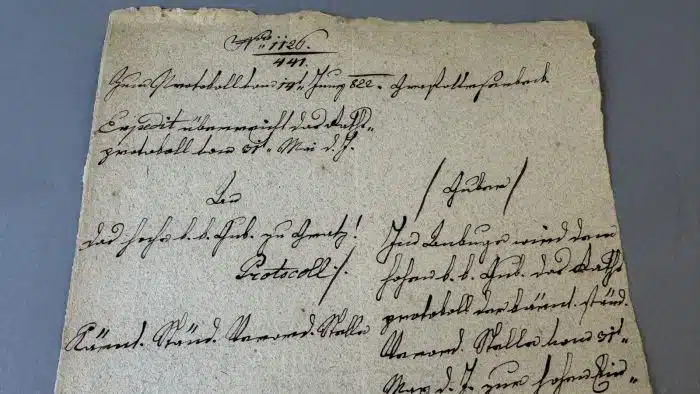 Nro 1126.
441.
Zum Protokoll vom 14t Juny 822.
Expedit überreicht das Raths-
protokoll vom 31t May d. J.
An
das hohe k. k. Gub. zu Gratz!
Protocoll ./.
Kärnt. Ständ. Verord. Stelle
/ Guber /
Im Anbuge wird dem
hohen k. k. Gub. das Raths
protokoll der kärnt. ständ.
Verord. Stelle vom 31t
May d. J. zur hohen Ein-